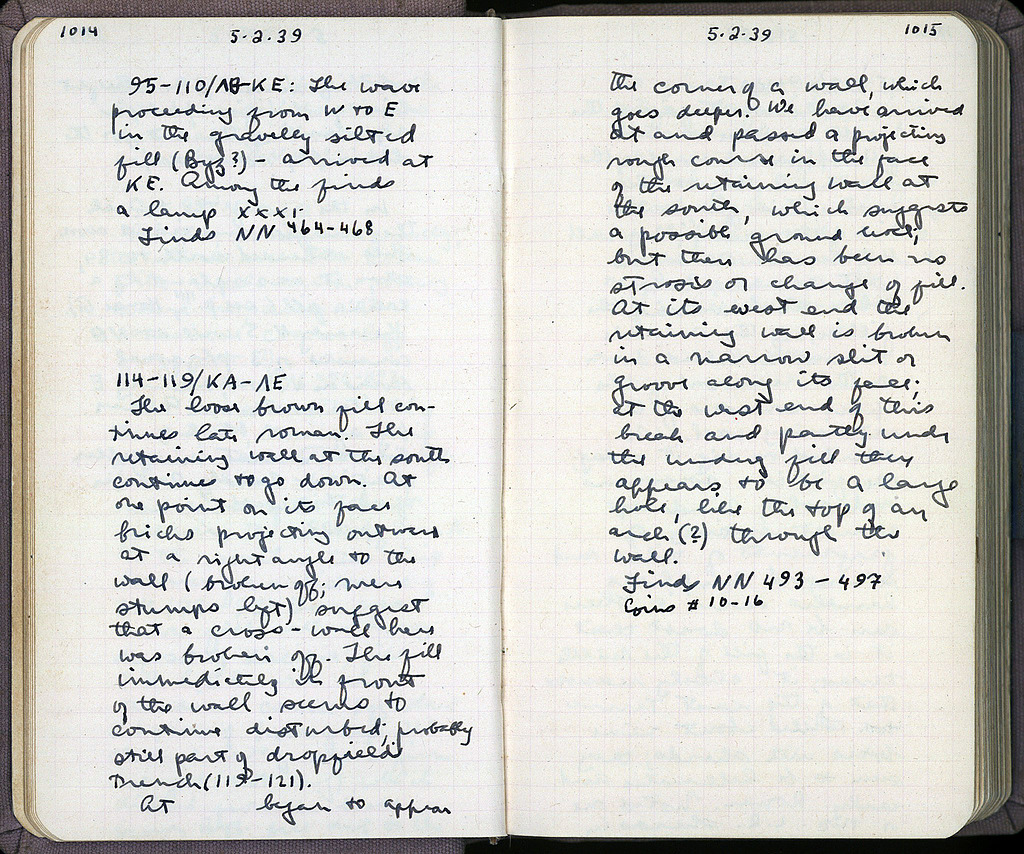 1014
5·2·39
95-110/ΛΘ-ΚΕ: The wave
proceeding from W to E
in the gravelly silted
fill (Byz?) – arrived at
ΚΕ. Among the finds
a lamp XXXI.
Finds NN 464-468
114-119/ΚΑ-ΛΕ
The loose brown fill con-
tinues late roman. The
retaining wall at the south
continues to go down. At
one point on its face
bricks projecting outwards
at a right angle to the
wall (broken off; mere
stumps left) suggest
that a cross-wall here
was broken off. The fill
immediately in front
of the wall seems to
continue disturbed; probably
still part of dropfield
trench (119-121).
At began to appear
5·2·39
1015
the corner of a wall, which
goes deeper. We have arrived
at and passed a projecting
rough course in the face
of the retaining wall at
the south, which suggests
a possible ground level,
but there has been no
strosis or change of fill.
At its west end the
retaining wall is broken
in a narrow slit or
groove along its face;
at the west end of this
break and partly under
the undug fill there
appears to be a large
hole, like the top of an
arch (?) through the
wall.
Finds NN 493-497
Coins # 10-16